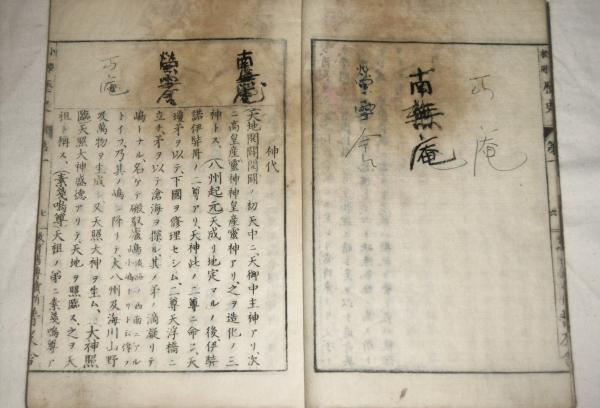 巧庵
南無庵
螢雪舎
南無庵
螢雪舎
巧庵
神代
天地開闢ノ初天中ニ天御中主神アリ、次
ニ高皇産靈神神皇産靈神アリ之ヲ造化ノ三
神トス、八州起元天成リ地定マル後伊弉
諾伊弉冊ノ二尊アリ、天神此ノ二尊ニ命シ天
瓊矛ヲ以テ下國ヲ修理セシム、二尊天浮橋ニ
立チ矛ヲ以テ滄海ヲ探ル、其ノ矛ノ滴凝リテ
嶋トナル、名ケテ磤馭盧嶋
トイフ、乃其ノ嶋ニ降リテ大八州及海川山野
及萬物ヲ生成シ又天照大神ヲ生ム、大神照
臨天照大神盛德アリテ、天地ヲ照臨ス、之ヲ天
祖ト稱ス、素戔嗚尊天祖ノ弟ニ素戔嗚尊ア